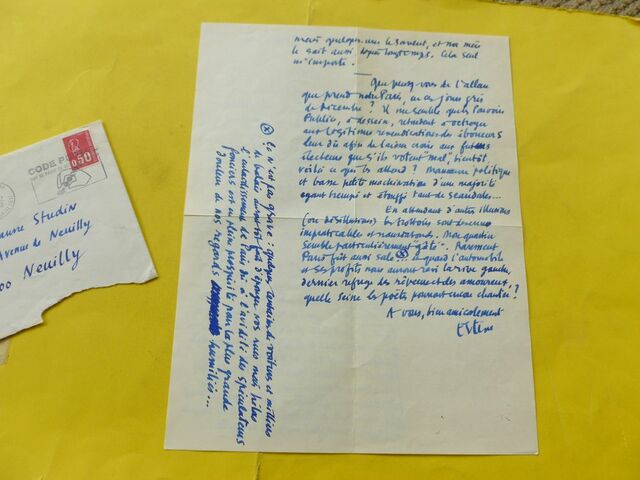 CODE P
0,50
Studin
Avenue de Neuilly
00 Neuilly
quelques uns le savent, et ma mère
le sait aussi depuis longtemps. Cela seul
m'importe.
Que pensez-vous de l'allure
que prend notre Paris, en ces jours gris
de décembre ? Il me semble que le Pouvoir
Public, a dessein, retardent d'octroyer
aux légitimes revendications des éboueurs
leur dû afin de laisser croire aux futurs
électeurs que s'ils votent "mal", bientôt
voilà ce qui les attend ? Manœuvre politique
et basse petite machination d'un majorité
ayant trempé et étouffé tant de scandales...
En attendant d'autres illusions
(ou désillusions) les trottoirs sont devenus
impraticables et nauséabonds. Mon quartier
semble particulièrement "gâté". Rarement
Paris fût aussi sale (x) et quand l'automobile
et ses profits nous auront ravi la rive gauche,
dernier refuge des rêveurs et des amoureux,
quelle Seine les poètes pourront encore chanter ?
A vous, bien amicalement
(x) Ce n'est pas grave : quelques centaines de voitures et milliers
de balais
l'enlaidissement de Paris dû à l'avidité des spéculateurs
fonciers est en pleine prospérité pour la plus grande
douleur de nos regards humiliés...